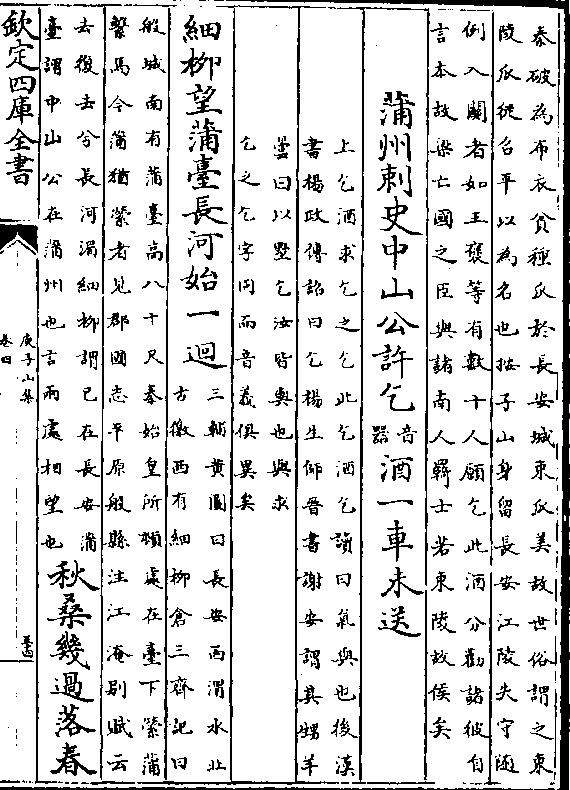 秦破為布衣貧種瓜於長安城東瓜美故世俗謂之東
陵瓜從召平以為名也按子山身留長安江陵失守隨
例入關者如王褒等有數十人願乞此酒分勸諸彼自
言本故梁亡國之臣與諸南人羇士若東陵故侯矣
蒲州刺史中山公許乞音器酒一車未送
上乞酒求乞之乞此乞酒乞讀曰氣與也後漢
書楊政傳詔曰乞楊生師晉書謝安謂其甥羊
曇曰以墅乞汝皆與也與求
乞之乞字同而音義俱異矣
細柳望蒲臺長河始一迴三輔黄圖曰長安西渭水北
古徼西有細柳倉三齊記曰
般城南有蒲臺高八十尺秦始皇所頓處在臺下縈蒲
繫馬今蒲猶縈者見郡國志平原般縣注江淹别賦云
去復去兮長河濁細柳謂已在長安蒲
臺謂中山公在蒲州也言兩處相望也秋桑幾過落春
欽定四庫全書
庾子山集
卷四